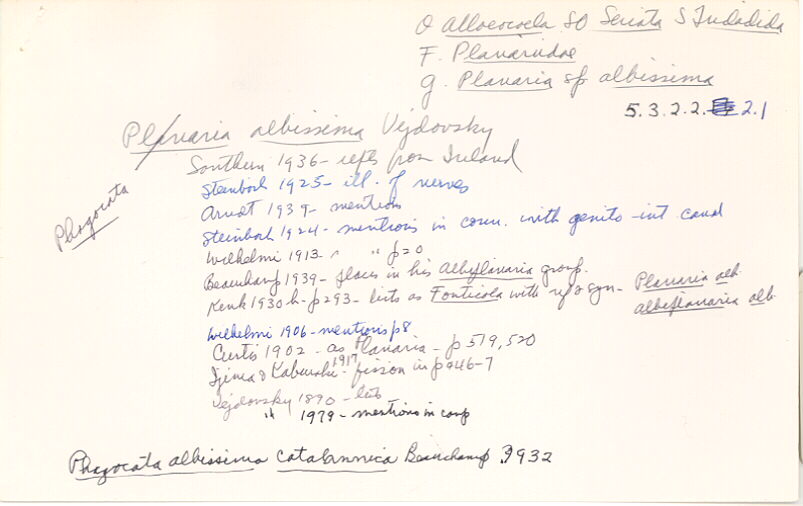 O Alloeocoela SO Seriata S Tricladida
F. Planariidae
g. Planaria sp albissima
5.3.2.2. 2.1
Planaria albissima Vejdovsky
Phagocata
Southern 1936 - refs from Ireland
Steinboch 1925 - ill. of nerves
Arndt 1939 - mentions
Steinboch 1924 - mentions in conn. with genito-int canal
Wilhelmi 1913 - " " p20
Beauchamp 1939 - places in his Albiplanaria group.
Kenk 1930 b - p293 - lists as Fonticola with ref & syn - Planaria alb.
albiplanaria alb.
Wilhelmi 1906 - mentions p8
Curtis 1902 - as Planaria - p 519, 520
Ijima & Kaburaki 1917 - fission in p 246-7
Vejdovsky 1890 - lists
" 1979 - mentions in comp
Phagocata albissima catalaunica Beauchamp 1932